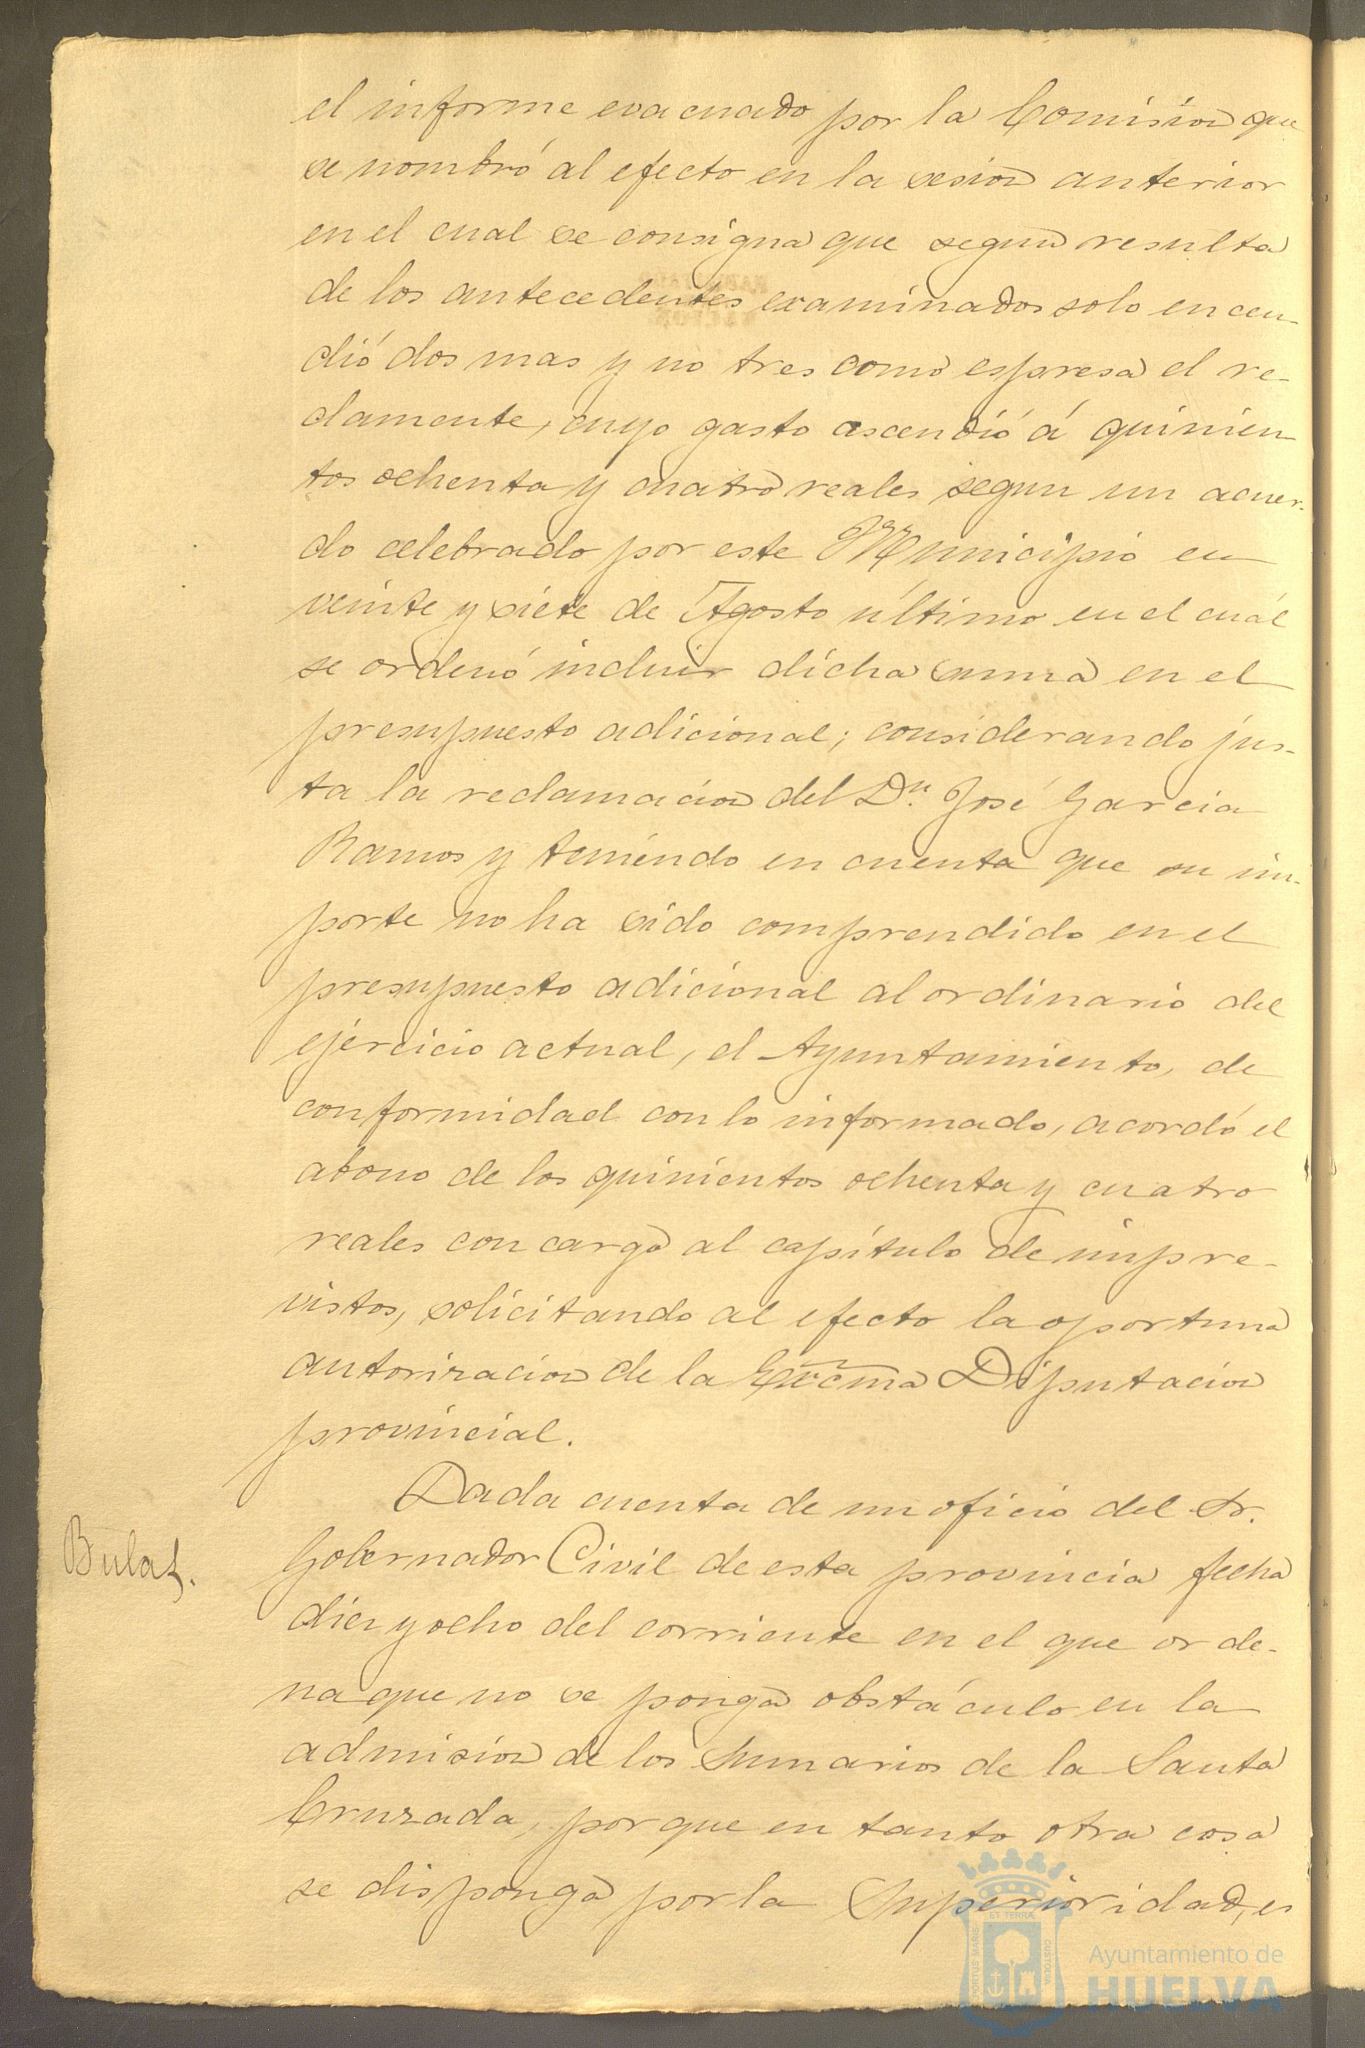 el informe evacuado por la Comision que
se nombró al efecto en la sesion anterior
en el cual se consigna que segun resulta
de los antecedentes examinados solo encen-
dió dos mas y no tres como espresa el re-
clamente, cuyo gasto ascendió á quinien-
tos ochenta y cuatro reales segun un acuer-
do celebrado por este Municipio en
veinte y siete de Agosto último en el cuál
se ordenó incluir dicha suma en el
presupuesto adicional; considerando jus-
ta la reclamacion del Dn. José Garcia
Ramos y teniendo en cuenta que su im-
porte no ha sido comprendido en el
presupuesto adicional al ordinario del
ejercicio actual, el Ayuntamiento, de
conformidad con lo informado, acordó el
abono de los quinientos ochenta y cuatro
reales con cargo al capítulo de impre-
vistos, solicitando al efecto la oportuna
autorizacion de la Excma Diputacion
provincial.
Dada cuenta de un oficio del Sr.
Bulas.
Gobernador Civil de esta provincia fecha
diez y ocho del corriente en el que orde-
na que no se ponga obstáculo en la
admision de los Sumarios de la Santa
Cruzada, porque en tanto otra cosa
se disponga por la Superioridad, es
PORTUS MARIS ET TERRÆ CUSTODIA
Ayuntamiento de
HUELVA